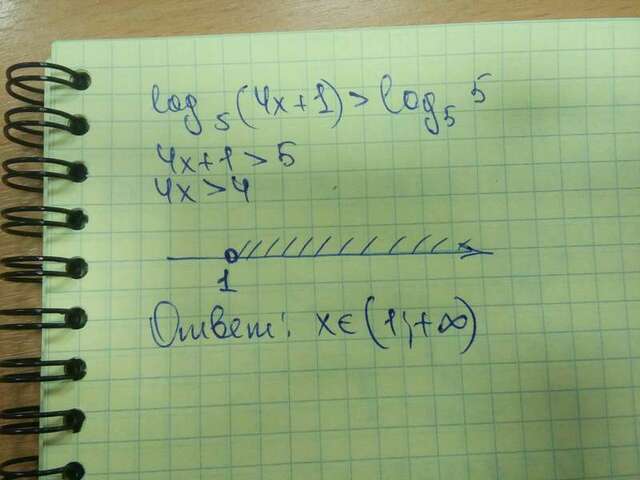 log₅(4x+1)>log₅5
4x+1>5
4x>4
1
Ответ: x∈(1;+∞)